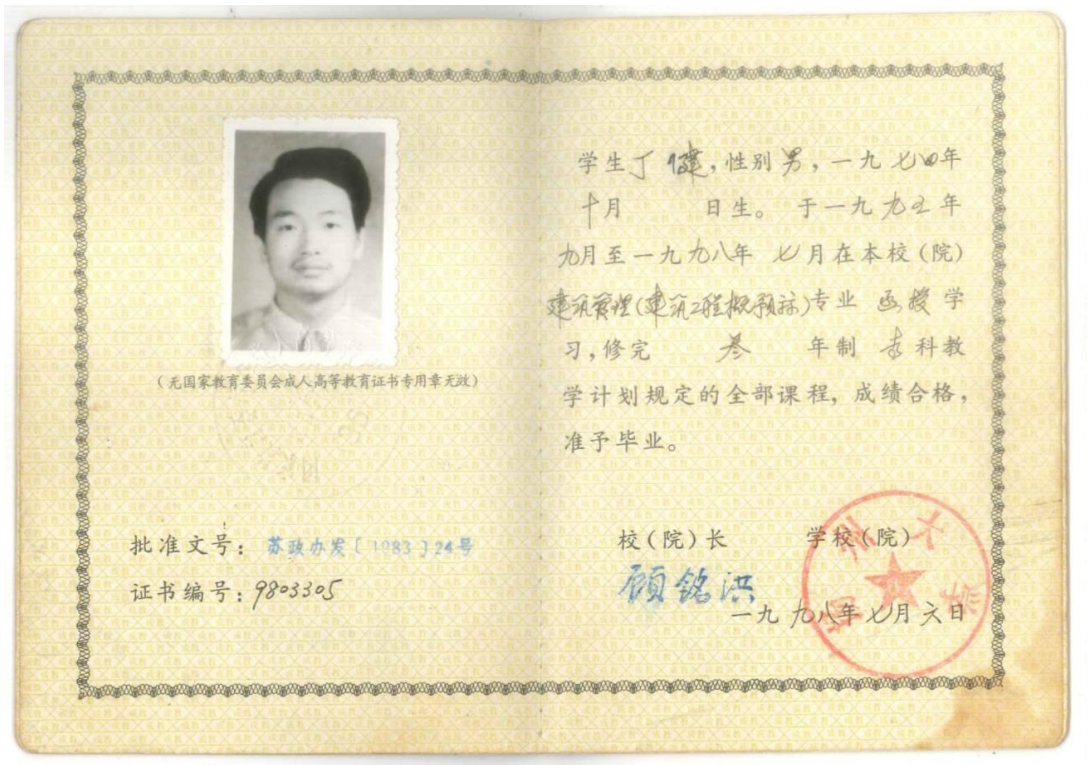 (无国家教育委员会成人高等教育证书专用章无效)
批准文号: 苏政办发〔1983〕24号
证书编号: 9803305
学生丁健,性别男,一九七四年
十月 日生。于一九九五年
九月至一九九八年 七月在本校(院)
建筑管理(建筑工程概预标)专业 函授学
习,修完 叁 年制 专科教
学计划规定的全部课程,成绩合格,
准予毕业。
校(院)长 学校(院)
顾铭洪
一九九八年七月六日